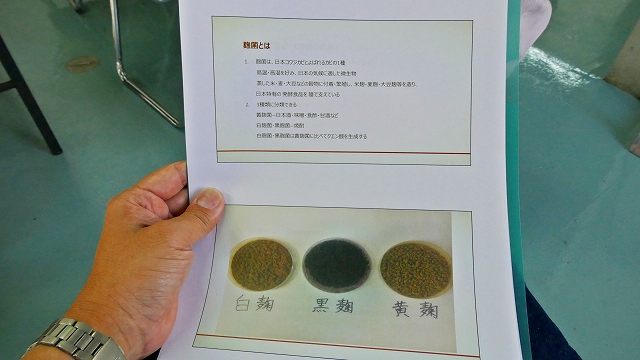 麹菌とは
1. 麹菌は、日本コウジカビとよばれるカビの1種
高温・高湿を好み、日本の気候に適した微生物
蒸した米・麦・大豆などの穀物に付着・繁殖し、米麹・麦麹・大豆麹等を造り、
日本特有の発酵食品を陰で支えている
2. 3種類に分類できる
黄麹菌→日本酒・味噌・食酢・甘酒など
白麹菌・黒麹菌→焼酎
白麹菌・黒麹菌は黄麹菌に比べてクエン酸を生成する
白麹 黒麹 黄麹